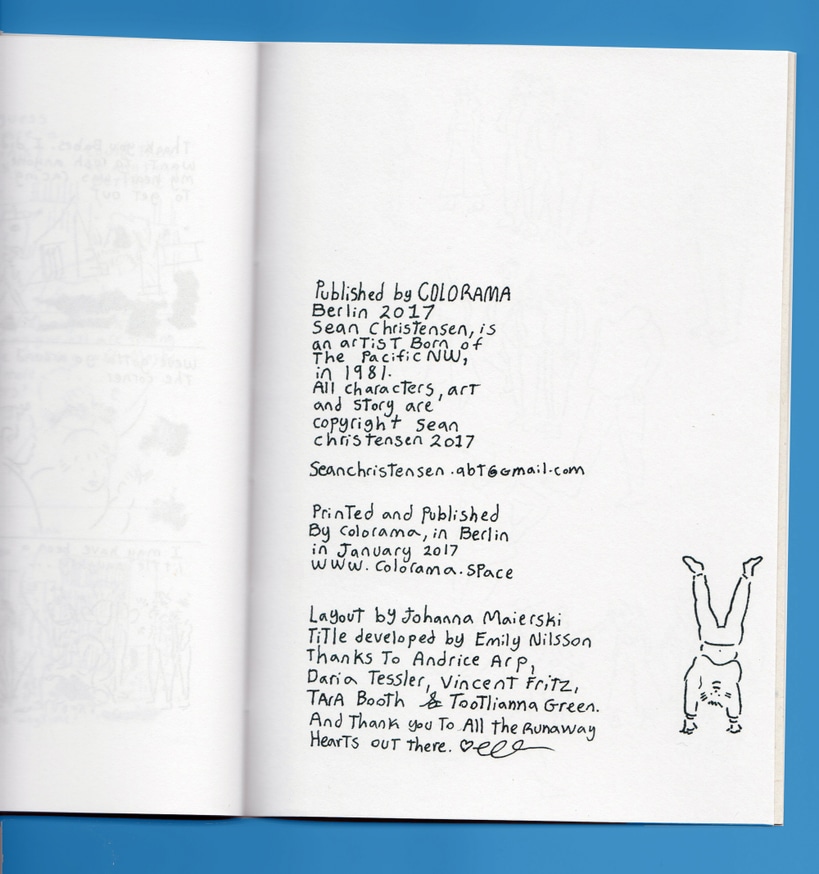 Published by COLORAMA
Berlin 2017
Sean Christensen, is
an artist Born of
The Pacific NW,
in 1981.
All characters, art
and story are
copyright Sean
christensen 2017
Seanchristensen.abt@gmail.com
Printed and Published
By Colorama, in Berlin
in January 2017
WWW.Colorama.Space
Layout by Johanna Maierski
Title developed by Emily Nilsson
Thanks To Andrice Arp,
Daria Tessler, Vincent Fritz,
TARA Booth & Tootlianna Green.
And Thank you To All the Runaway
Hearts out there.